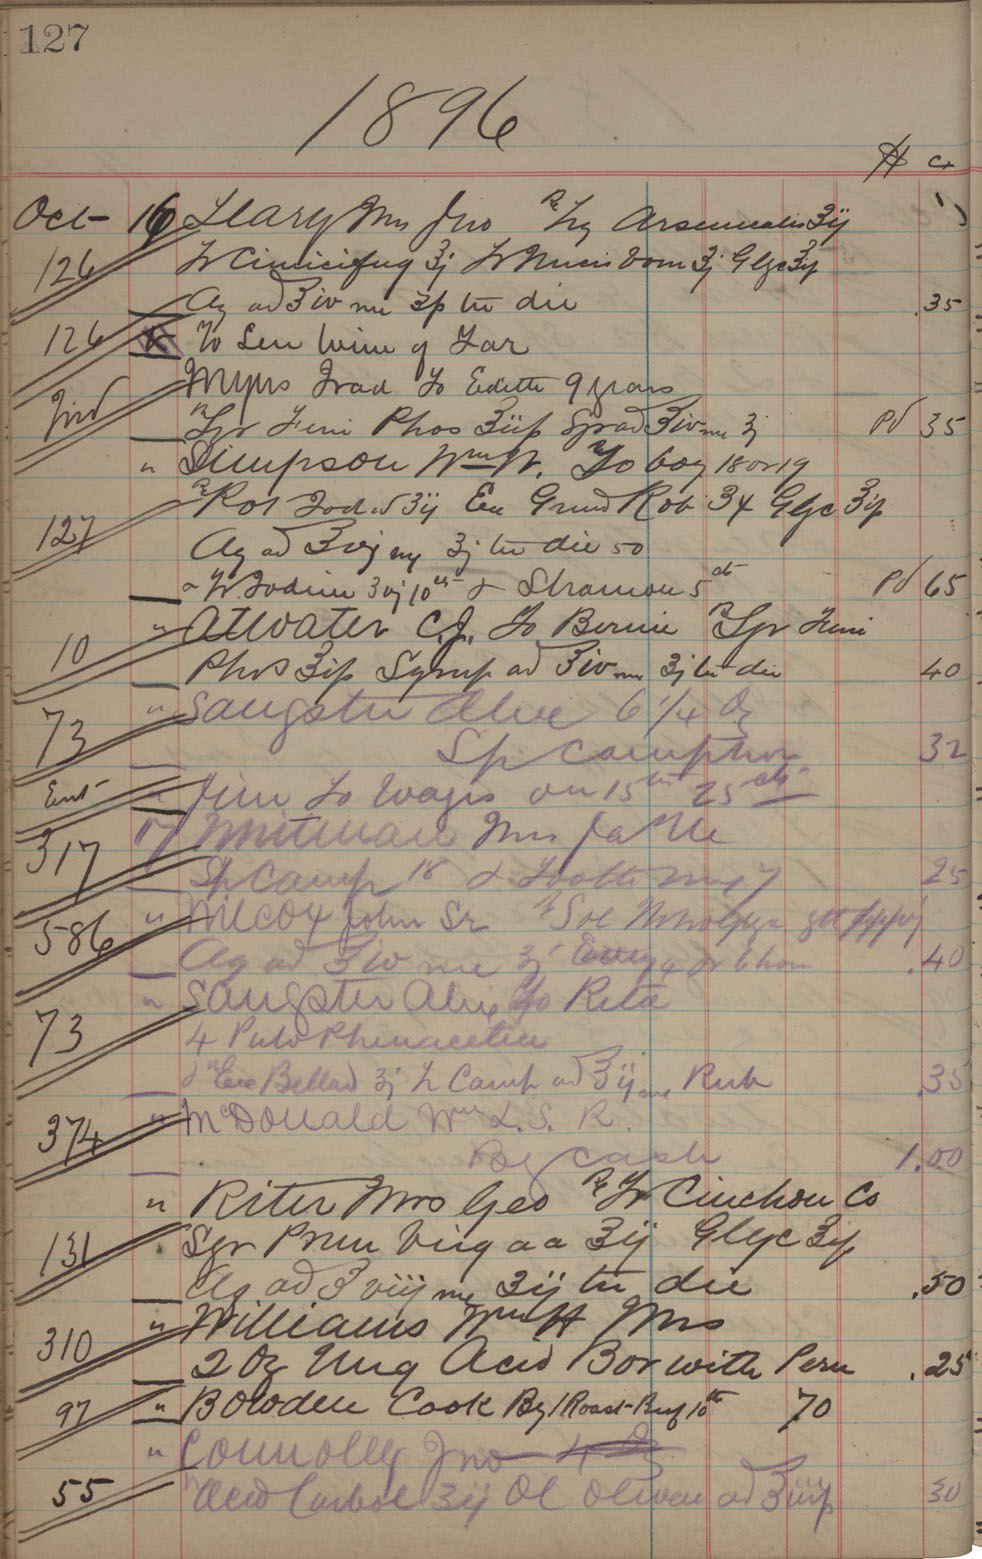 127
1896
$ cr
Oct 16 Mrs Jno ℞ Liq Arsenicalis ʒij
126 Tr Cimicifug ʒj Tr Nucis Vom ʒj Glyc
Aq ad ℥iv me ter die .35
126 To Wine of Tar
Myers Fred To Edith 9 years
℞ Syr Ferri Phos ad ℥iv me ʒj Pd 35
" Simpson Wm W. To boy 18 or 19
127 ℞ Pot Iod ʒij Ext Grind Rob ʒ4 Glyc
Aq ad me ʒj ter die 50
Tr Iodine 10cts & Stramon 5cts Pd 65
10 " Atwater C.J. To Bernie ℞ Syr Ferri
Phos Syrup ad ℥iv me ʒj ter die 40
73 " Sangster Alex 6 1/4 Oz
Sp Camphor 32
Ent " Jim To Wages on 15th 25cts
317 17 Whiteman Mrs Ja
Sp Camp 18 & Tooth 7 25
586 " Wilcox John Sr ℞ Sol
Aq ad ℥iv me ʒj .40
73 " Sangster Alex To Reta
4 Pulv Phenacetin
& ℞ Ext Bellad ʒj Tr Camp ad ℥ij me Rub .35
374 " McDonald Wm L. S. R.
By Cash 1.00
" Riter Mrs Geo ℞ Tr Cinchon Co
131 Syr Prun Virg aa ʒij Glyc
Aq ad ℥viij me ʒij ter die .50
310 " Williams Wm H Mrs
2 Oz Ung Acid Bor with Peru .25
97 " Bowden Cook By 1 Roast Beef 10th 70
" Connolly Jno 4 Oz
55 ℞ Acid Carbol ʒij Ol Olivae ad 30